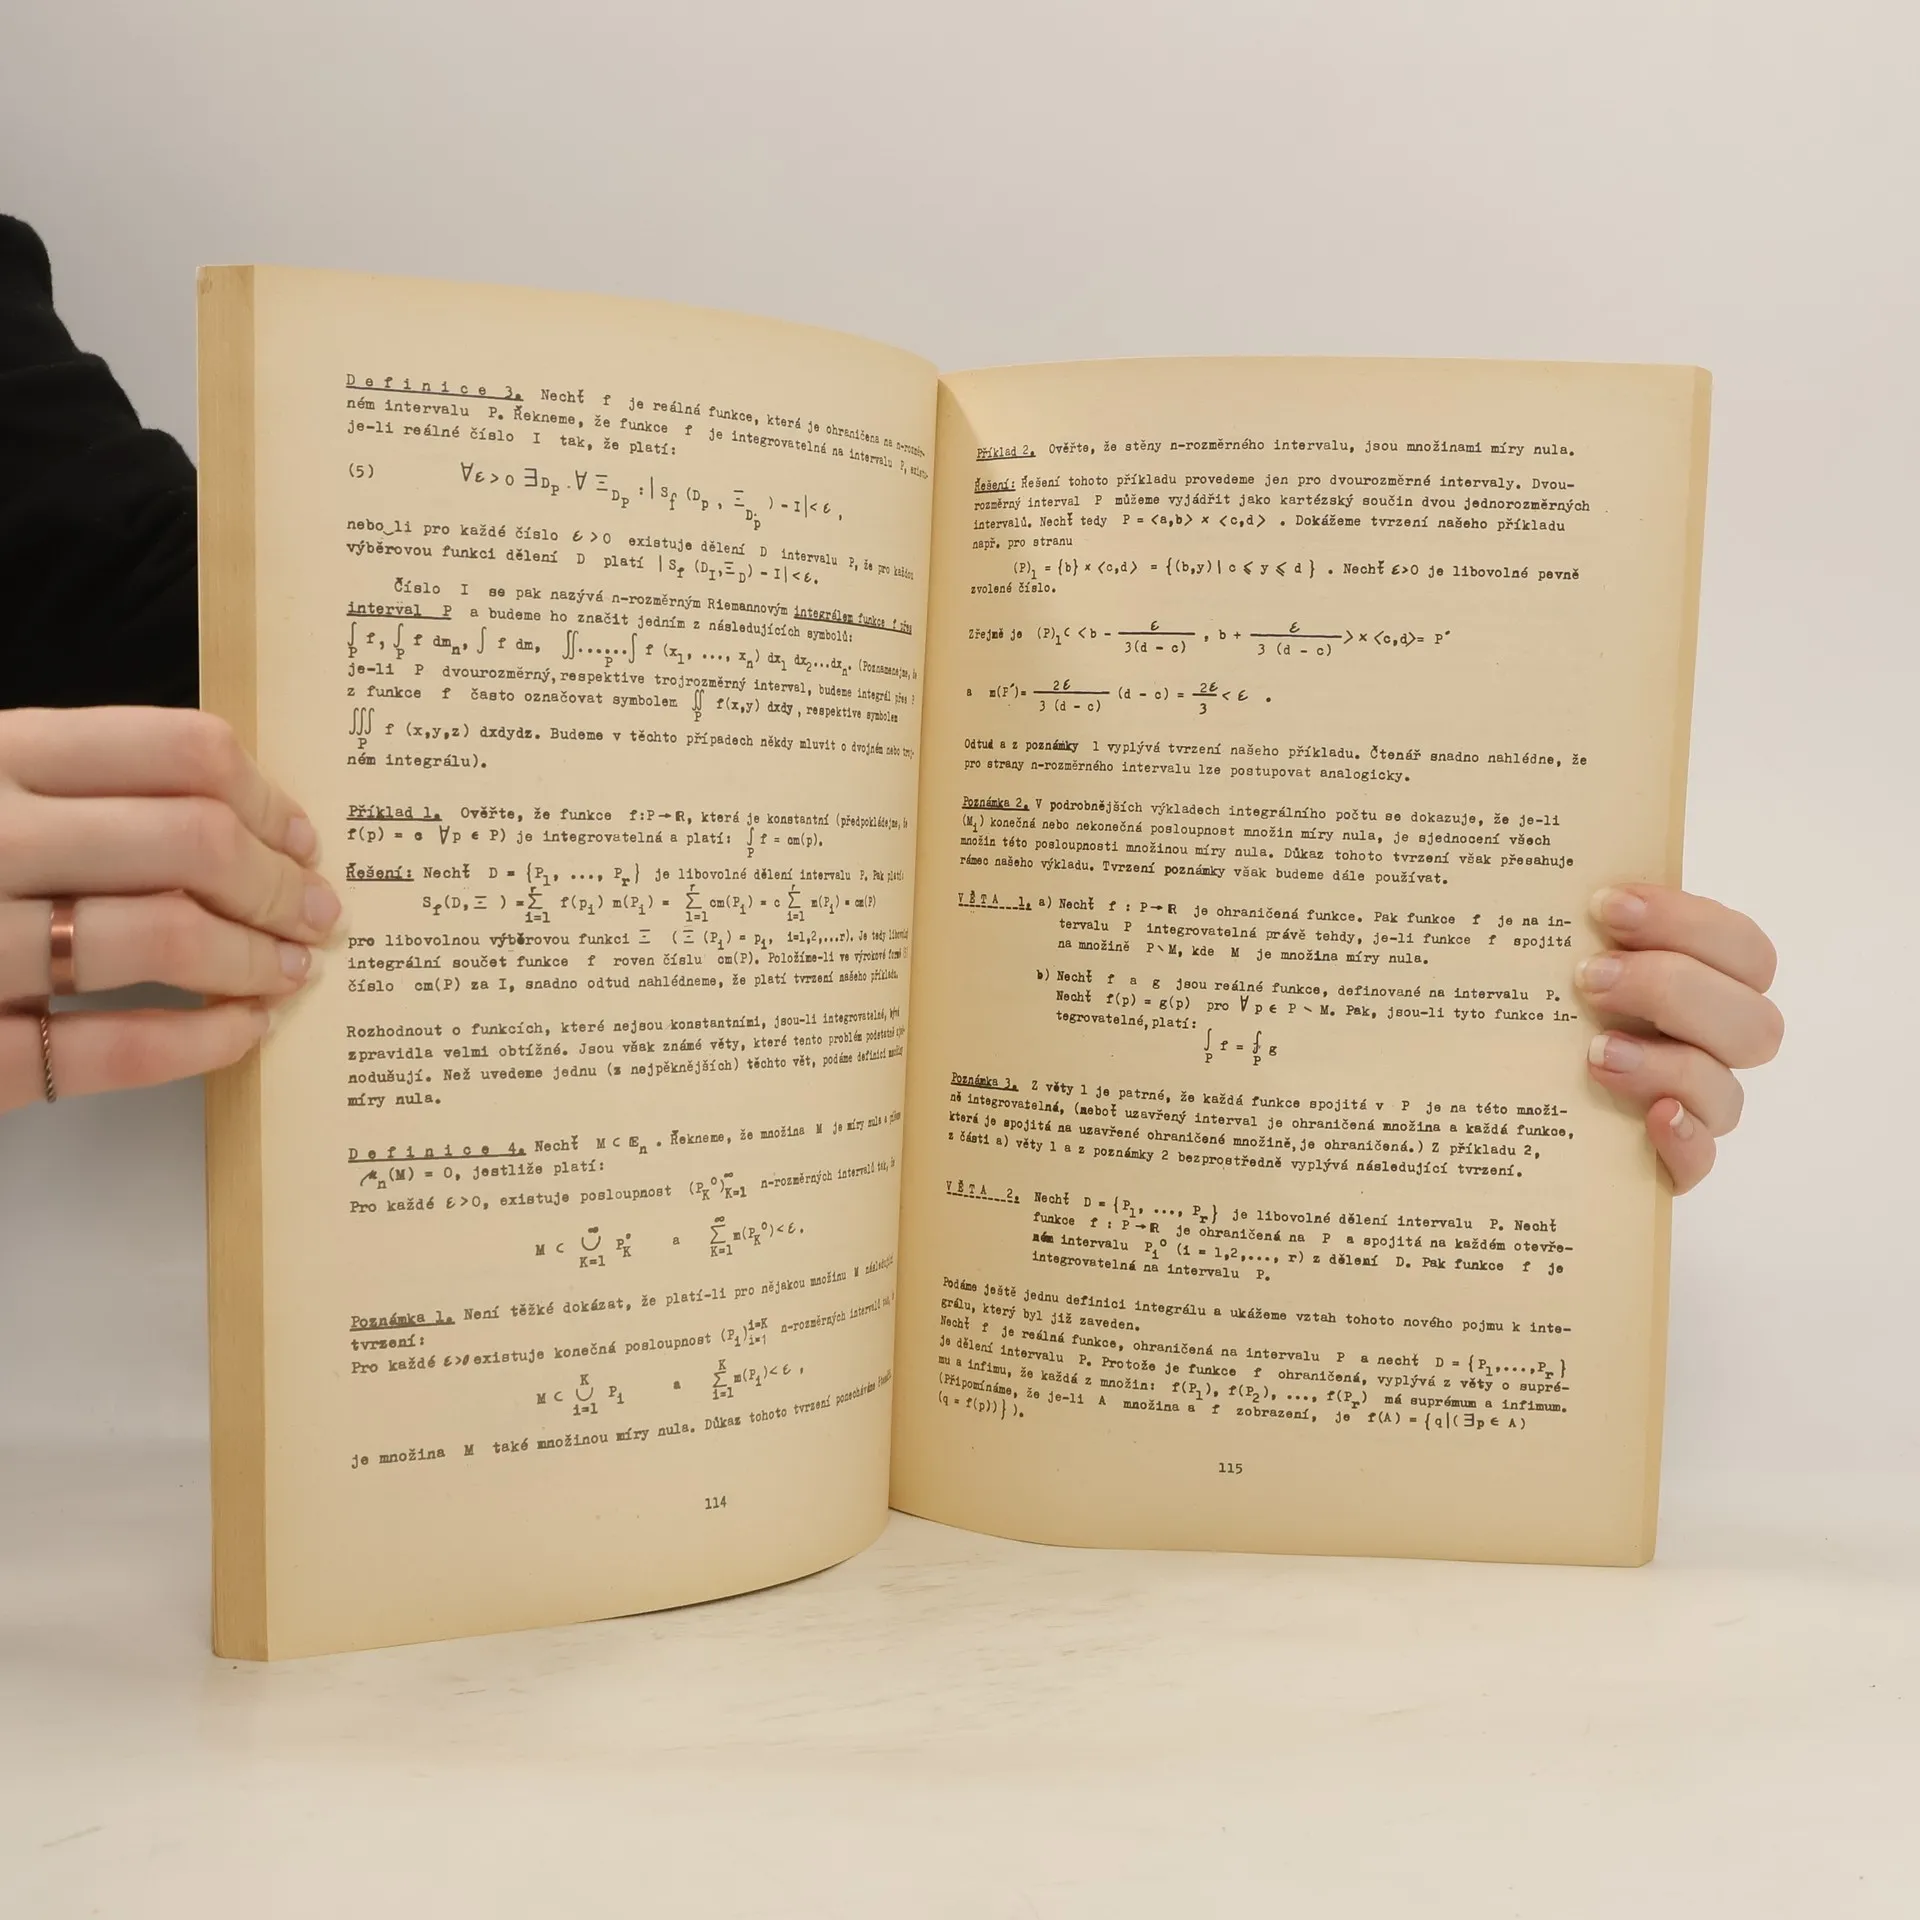 Definice 3. Nechť f je reálná funkce, která je ohraničena na n-rozměr-
ném intervalu P. Řekneme, že funkce f je integrovatelná na intervalu P, existu-
je-li reálné číslo I tak, že platí:
(5) ∀ε>0 ∃D_P . ∀ Ξ_{D_P} : |S_f (D_P , Ξ_{D_P} ) - I|< ε ,
nebo li pro každé číslo ε>0 existuje dělení D intervalu P, že pro každou
výběrovou funkci dělení D platí |S_f (D_I,Ξ_D) - I|<ε.
Číslo I se pak nazývá n-rozměrným Riemannovým integrálem funkce f přes
interval P a budeme ho značit jedním z následujících symbolů:
∫_P f, ∫_P f dm_n, ∫ f dm, ∬......∫_P f (x_1, ..., x_n) dx_1 dx_2...dx_n. (Poznamenejme, že
je-li P dvourozměrný, respektive trojrozměrný interval, budeme integrál přes P
z funkce f často označovat symbolem ∬_P f(x,y) dxdy, respektive symbolem
∭_P f (x,y,z) dxdydz. Budeme v těchto případech někdy mluvit o dvojném nebo troj-
ném integrálu).
Příklad 1. Ověřte, že funkce f:P→R, která je konstantní (předpokládejme, že
f(p) = c ∀p ∈ P) je integrovatelná a platí: ∫_P f = cm(p).
Řešení: Nechť D = {P_1, ..., P_r} je libovolné dělení intervalu P. Pak platí:
S_f(D,Ξ ) =∑_{i=1}^r f(p_i) m(P_i) = ∑_{i=1}^r cm(P_i) = c ∑_{i=1}^r m(P_i) = cm(P)
pro libovolnou výběrovou funkci Ξ (Ξ (P_i) = p_i, i=1,2,...r). Je tedy libovolný
integrální součet funkce f roven číslu cm(P). Položíme-li ve výrokové formě (5)
číslo cm(P) za I, snadno odtud nahlédneme, že platí tvrzení našeho příkladu.
Rozhodnout o funkcích, které nejsou konstantními, jsou-li integrovatelné, bývá
zpravidla velmi obtížné. Jsou však známé věty, které tento problém podstatně zjed-
nodušují. Než uvedeme jednu (z nejpěknějších) těchto vět, podáme definici množiny
míry nula.
Definice 4. Nechť M ⊂ E_n . Řekneme, že množina M je míry nula a píšeme
μ_n(M) = 0, jestliže platí:
Pro každé ε>0, existuje posloupnost (P_K^o)_{K=1}^∞ n-rozměrných intervalů tak, že
M ⊂ ∪_{K=1}^∞ P_K^o a ∑_{K=1}^∞ m(P_K^o)<ε.
Poznámka 1. Není těžké dokázat, že platí-li pro nějakou množinu M následující
tvrzení:
Pro každé ε>0 existuje konečná posloupnost (P_i)_{i=1}^{i=K} n-rozměrných intervalů
M ⊂ ∪_{i=1}^K P_i a ∑_{i=1}^K m(P_i)<ε ,
je množina M také množinou míry nula. Důkaz tohoto tvrzení ponecháváme čtenáři.
114
Příklad 2. Ověřte, že stěny n-rozměrného intervalu, jsou množinami míry nula.
Řešení: Řešení tohoto příkladu provedeme jen pro dvourozměrné intervaly. Dvou-
rozměrný interval P můžeme vyjádřit jako kartézský součin dvou jednorozměrných
intervalů. Nechť tedy P = <a,b> × <c,d> . Dokážeme tvrzení našeho příkladu
např. pro stranu
(P)_1 = {b} × <c,d> = {(b,y)| c ⩽ y ⩽ d } . Nechť ε>0 je libovolné pevně
zvolené číslo.
Zřejmě je (P)_1 ⊂ <b - ε/3(d - c) , b + ε/3 (d - c) > × <c,d>= P´
a m(P´)= 2ε/3 (d - c) (d - c) = 2ε/3 < ε .
Odtud a z poznámky 1 vyplývá tvrzení našeho příkladu. Čtenář snadno nahlédne, že
pro strany n-rozměrného intervalu lze postupovat analogicky.
Poznámka 2. V podrobnějších výkladech integrálního počtu se dokazuje, že je-li
(M_i) konečná nebo nekonečná posloupnost množin míry nula, je sjednocení všech
množin této posloupnosti množinou míry nula. Důkaz tohoto tvrzení však přesahuje
rámec našeho výkladu. Tvrzení poznámky však budeme dále používat.
VĚTA 1. a) Nechť f : P→R je ohraničená funkce. Pak funkce f je na in-
tervalu P integrovatelná právě tehdy, je-li funkce f spojitá
na množině P∖M, kde M je množina míry nula.
b) Nechť f a g jsou reálné funkce, definované na intervalu P.
Nechť f(p) = g(p) pro ∀ p ∈ P ∖ M. Pak, jsou-li tyto funkce in-
tegrovatelné, platí:
∫_P f = ∫_P g
Poznámka 3. Z věty 1 je patrné, že každá funkce spojitá v P je na této množi-
ně integrovatelná, (neboť uzavřený interval je ohraničená množina a každá funkce,
která je spojitá na uzavřené ohraničené množině, je ohraničená.) Z příkladu 2,
z části a) věty 1 a z poznámky 2 bezprostředně vyplývá následující tvrzení.
VĚTA 2. Nechť D = {P_1, ..., P_r} je libovolné dělení intervalu P. Nechť
funkce f : P→R je ohraničená na P a spojitá na každém otevře-
ném intervalu P_i^o (i = 1,2,..., r) z dělení D. Pak funkce f je
integrovatelná na intervalu P.
Podáme ještě jednu definici integrálu a ukážeme vztah tohoto nového pojmu k inte-
grálu, který byl již zaveden.
Nechť f je reálná funkce, ohraničená na intervalu P a nechť D = {P_1,...,P_r}
je dělení intervalu P. Protože je funkce f ohraničená, vyplývá z věty o supré-
mu a infimu, že každá z množin: f(P_1), f(P_2), ..., f(P_r) má suprémum a infimum.
(Připomínáme, že je-li A množina a f zobrazení, je f(A) = {q|(∃p ∈ A)
(q = f(p))} ).
115